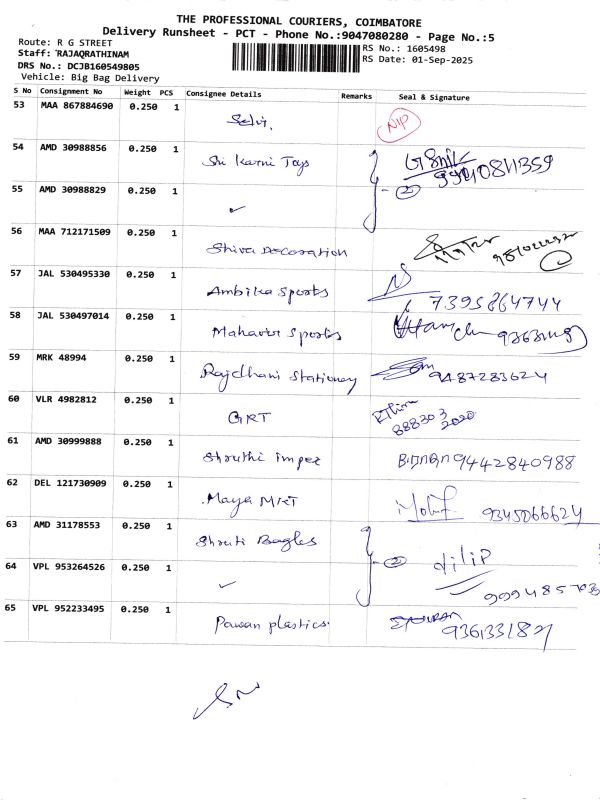 THE PROFESSIONAL COURIERS, COIMBATORE
Delivery Runsheet - PCT - Phone No.:9047080280 - Page No.:5
Route: R G STREET
Staff: RAJAQRATHINAM
DRS No.: DCJB160549805
Vehicle: Big Bag Delivery
RS No.: 1605498
RS Date: 01-Sep-2025
S No Consignment No Weight PCS Consignee Details Remarks Seal & Signature
53 MAA 867884690 0.250 1 Selvi. NIP
54 AMD 30988856 0.250 1 Sri Karni Toys
55 AMD 30988829 0.250 1 ✓ 2
56 MAA 712171509 0.250 1 Shiva Decoration
57 JAL 530495330 0.250 1 Ambika Sports 7395864744
58 JAL 530497014 0.250 1 Mahavir Sports
59 MRK 48994 0.250 1 Rajdhani Stationery 9487283624
60 VLR 4982812 0.250 1 GRT 888303 2020
61 AMD 30999888 0.250 1 Shruthi impex 9442840988
62 DEL 121730909 0.250 1 Maya MKT 9345066624
63 AMD 31178553 0.250 1 Shruti Bagles dilip
64 VPL 953264526 0.250 1 ✓ 2
65 VPL 952233495 0.250 1 Pawan plastics.